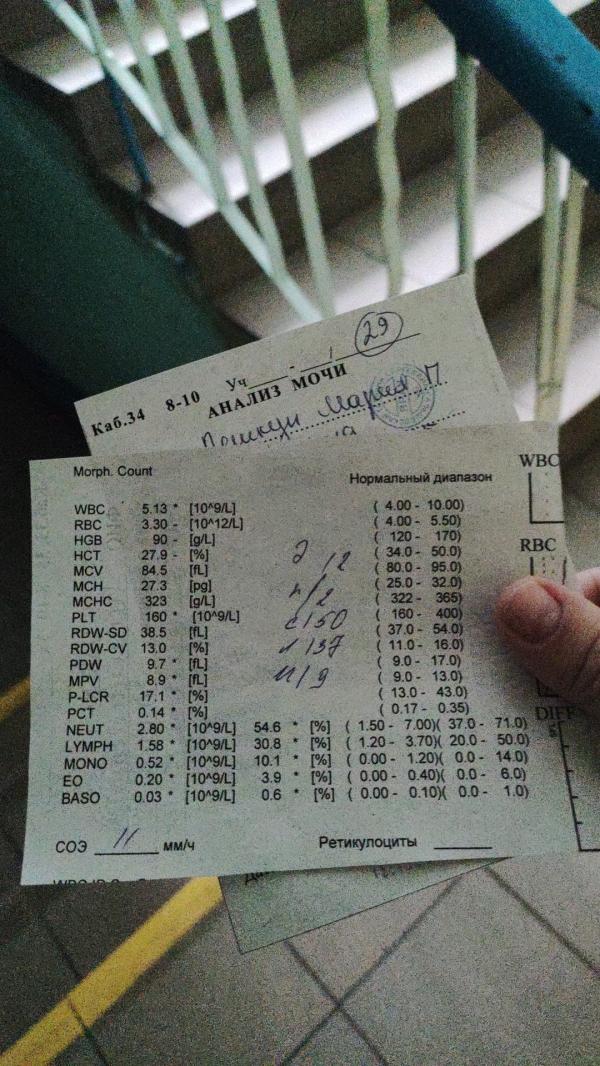 29
Каб.34 8-10 Уч
АНАЛИЗ МОЧИ
Мария П
Morph. Count
Нормальный диапазон
WBC 5.13 * [10^9/L] ( 4.00 - 10.00)
RBC 3.30 - [10^12/L] ( 4.00 - 5.50)
HGB 90 - [g/L] ( 120 - 170)
HCT 27.9 - [%] ( 34.0 - 50.0)
MCV 84.5 [fL] ( 80.0 - 95.0)
MCH 27.3 [pg] ( 25.0 - 32.0)
MCHC 323 [g/L] ( 322 - 365)
PLT 160 * [10^9/L] ( 160 - 400)
RDW-SD 38.5 [fL] ( 37.0 - 54.0)
RDW-CV 13.0 [%] ( 11.0 - 16.0)
PDW 9.7 * [fL] ( 9.0 - 17.0)
MPV 8.9 * [fL] ( 9.0 - 13.0)
P-LCR 17.1 * [%] ( 13.0 - 43.0)
PCT 0.14 * [%] ( 0.17 - 0.35)
NEUT 2.80 * [10^9/L] 54.6 * [%] ( 1.50 - 7.00)( 37.0 - 71.0)
LYMPH 1.58 * [10^9/L] 30.8 * [%] ( 1.20 - 3.70)( 20.0 - 50.0)
MONO 0.52 * [10^9/L] 10.1 * [%] ( 0.00 - 1.20)( 0.0 - 14.0)
EO 0.20 * [10^9/L] 3.9 * [%] ( 0.00 - 0.40)( 0.0 - 6.0)
BASO 0.03 * [10^9/L] 0.6 * [%] ( 0.00 - 0.10)( 0.0 - 1.0)
э/2
п/2
с/50
л/37
м/9
СОЭ 11 мм/ч Ретикулоциты
WBC
RBC
DIFF